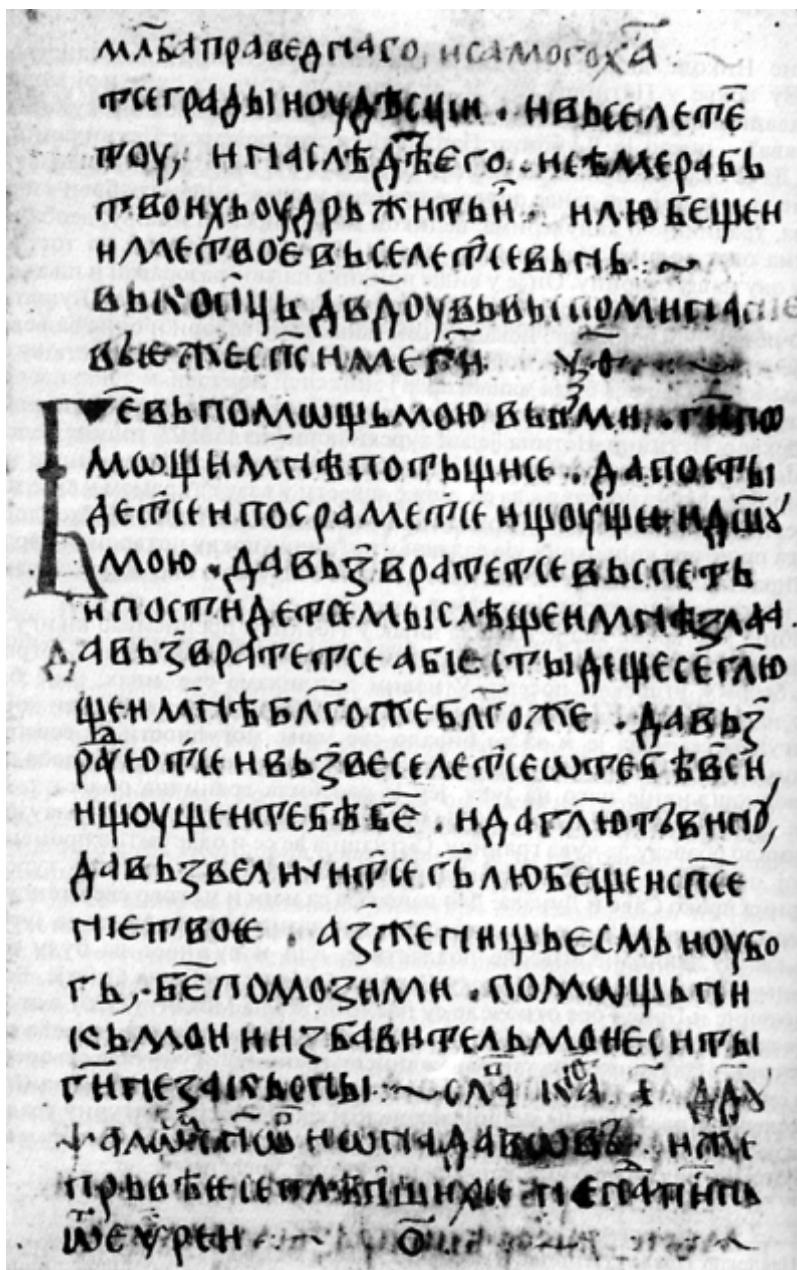 мл҃ба праведнаго, и самого х҃а
тсе гради июудѣсции · и вьселетс҃е
тоу, и наслѣде͆ его · и сѣме рабь
твоихь оудрьжить и҆ · и любещеи
име твоѥ вьселетсе вь нь :~
вь коп҃ць дв҃доу вь вьспоминаниѥ
вьѥже сп҃сти ме г҃и
Б҃е вь помѡщь мою вьнми · г҃и по
мѡщи мнѣ потьщисе · да посты
детсе и посраметсе ищоущеи дш҃у
мою · да вьз҃вратетсе вьспеть
и постидетсе мыслѣщеи мнѣ злаа ·
да вьз҃вратетсе абіе стыдещесе гл҃ю
щеи мнѣ бл҃гоже бл҃гоже · да вьз҃
рад҃уютсе и вьз҃веселетсе ѡ тебѣ вс҃и,
ищоущеи тебѣ б҃е · и да гл҃ють вину,
да вьзвеличитсе г҃ь любещеи сп҃се
ниѥ твоѥ · аз же нищь ѥсмь и оубо
гь, · б҃е помози ми · помѡщьни
кь мои и избавитель мои еси ты
г҃и не закьсны :~ сл҃а · о҃ · дв҃ду
ѱалѡ҃м сн҃ѡв иѡнадавѡвь иже
прьвѣе се плѣншихь не на҃писнь
ѿ еѵреи ·:~ о҃ ·:~